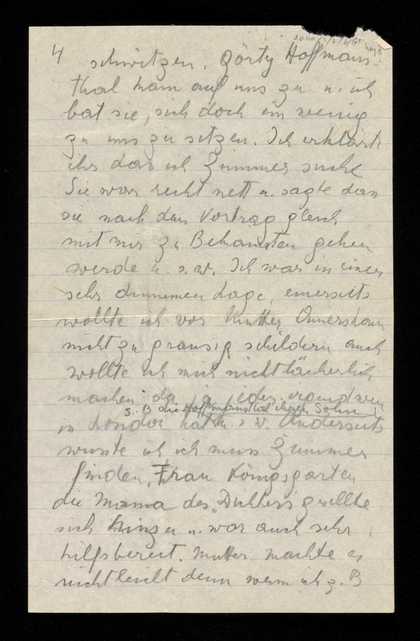 4
schwitzen. Görty Hoffmans-
thal kam auf uns zu u. ich
bat sie, sich doch ein wenig
zu uns zu setzen. Ich erklärte
ihr das ich Zimmer suche
Sie war recht nett u. sagte das
sie nach dem Vortrag gleich
mit mir zu Bekannten gehen
werde u. s. w. Ich war in einer
sehr dummen Lage, einerseits
wollte ich vor Mutter
nicht zu grausig schildern auch
wollte ich mich nicht lächerlich
machen da jeder irgendwen
z. B die Hoffmansthal ihren Sohn
in London hatte u. s. w. Anderseits
wusste ich ich muss Zimmer
finden, Frau Königsgarten
die Mama des
sich u. war auch sehr
hilfsbereit. Mutter machte es
nicht leicht denn wenn ich z. B